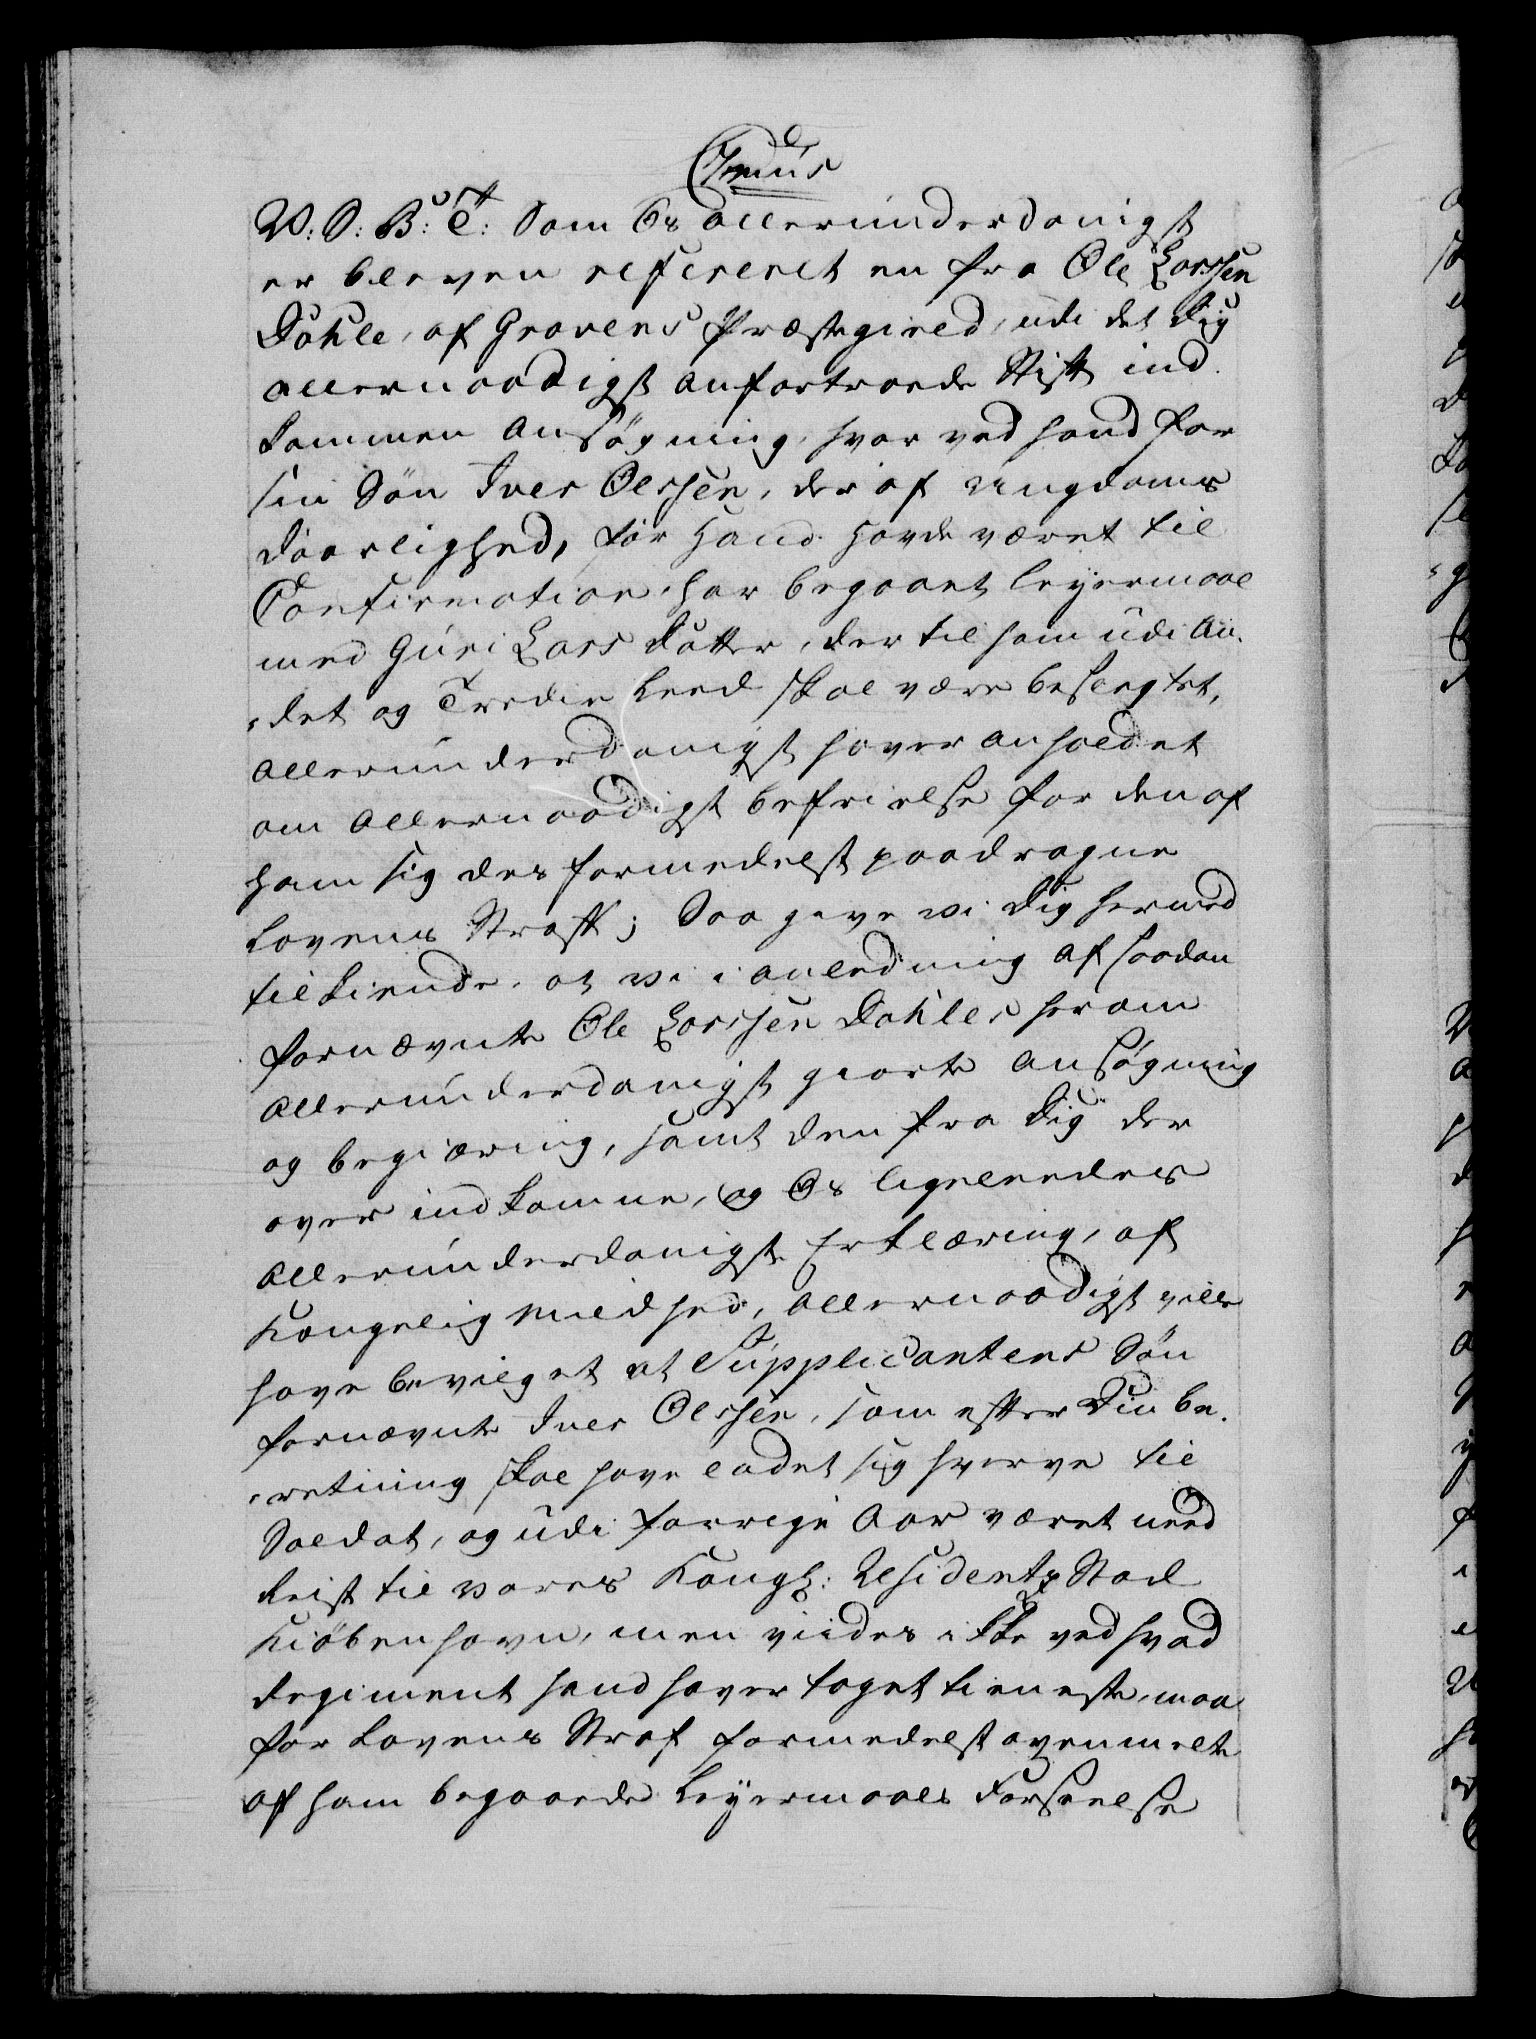 V: S: B: T: Som Os allerunderdanigst
er bleven refereret en fra Ole Larssen
Dahle, af Gravens Præstegield, udi det dig
allernaadigst anfortroede Stift ind-
kommen Ansøgning, hvor ved hand for
sin Søn Iver Olssen, der af Ungdoms
daarlighed, før Hand havde været til
Confirmation, har begaaet Leyermaal
med Guri Lars Datter, der til ham udi An-
det og Tredie Leed skal være beslegtet,
allerunderdanigst haver anholdet
om allernaadigst befrielse for den af
ham sig des formedelst paadragne
Lovens Straff; Saa give vi dig hermed
tilkiende, at vi i anledning af saadan
fornævnte Ole Larssen Dahles herom
allerunderdanigst giorte Ansøgning
og begiæring, samt den fra dig der
over indkomne, og Os ligeleedes
allerunderdanigst Erklæring, af
Kongelig Mildhed, allernaadigst ville
have bevilget at Supplicantens Søn
fornævnte Iver Olssen, som efter Din be-
retning skal have ladet sig hverve til
Soldat, og udi forrige Aar været need
reist til vores Kongl: Residentz Stad
Kiøbenhavn, men viides ikke ved hvad
Regiment hand haver taget tieneste, maa
for Lovens Straf formedelst ovenmelte
af ham begaaede Leyermaals Forseelse